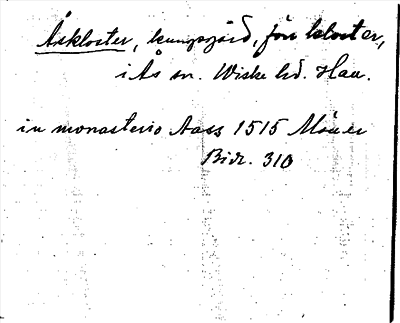 Åskloster, kungsgård, förr kloster,
i Ås sn. Wiske hd. Hall.
in monasterio Aass 1515 Möller
Bidr. 310